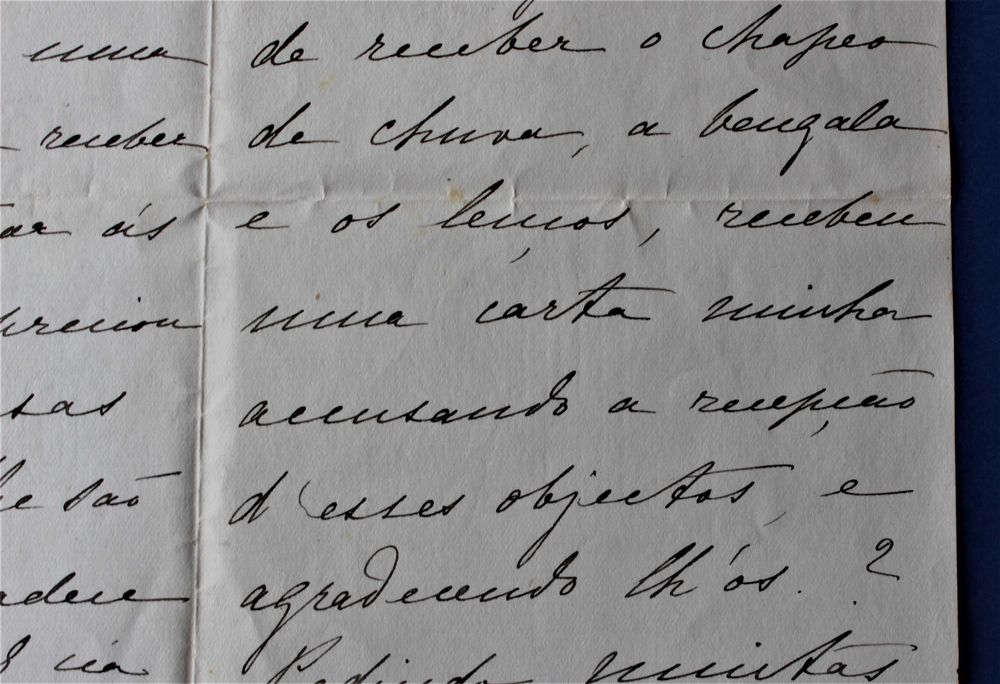 uma
receber
ás
sas
são
de receber o chapeo
de chuva, a bengala
e os lenços, recebeu
uma carta minha
accusando a recepção
d'esses objectos, e
agradecendo lh'os. ?
Pedindo muitas